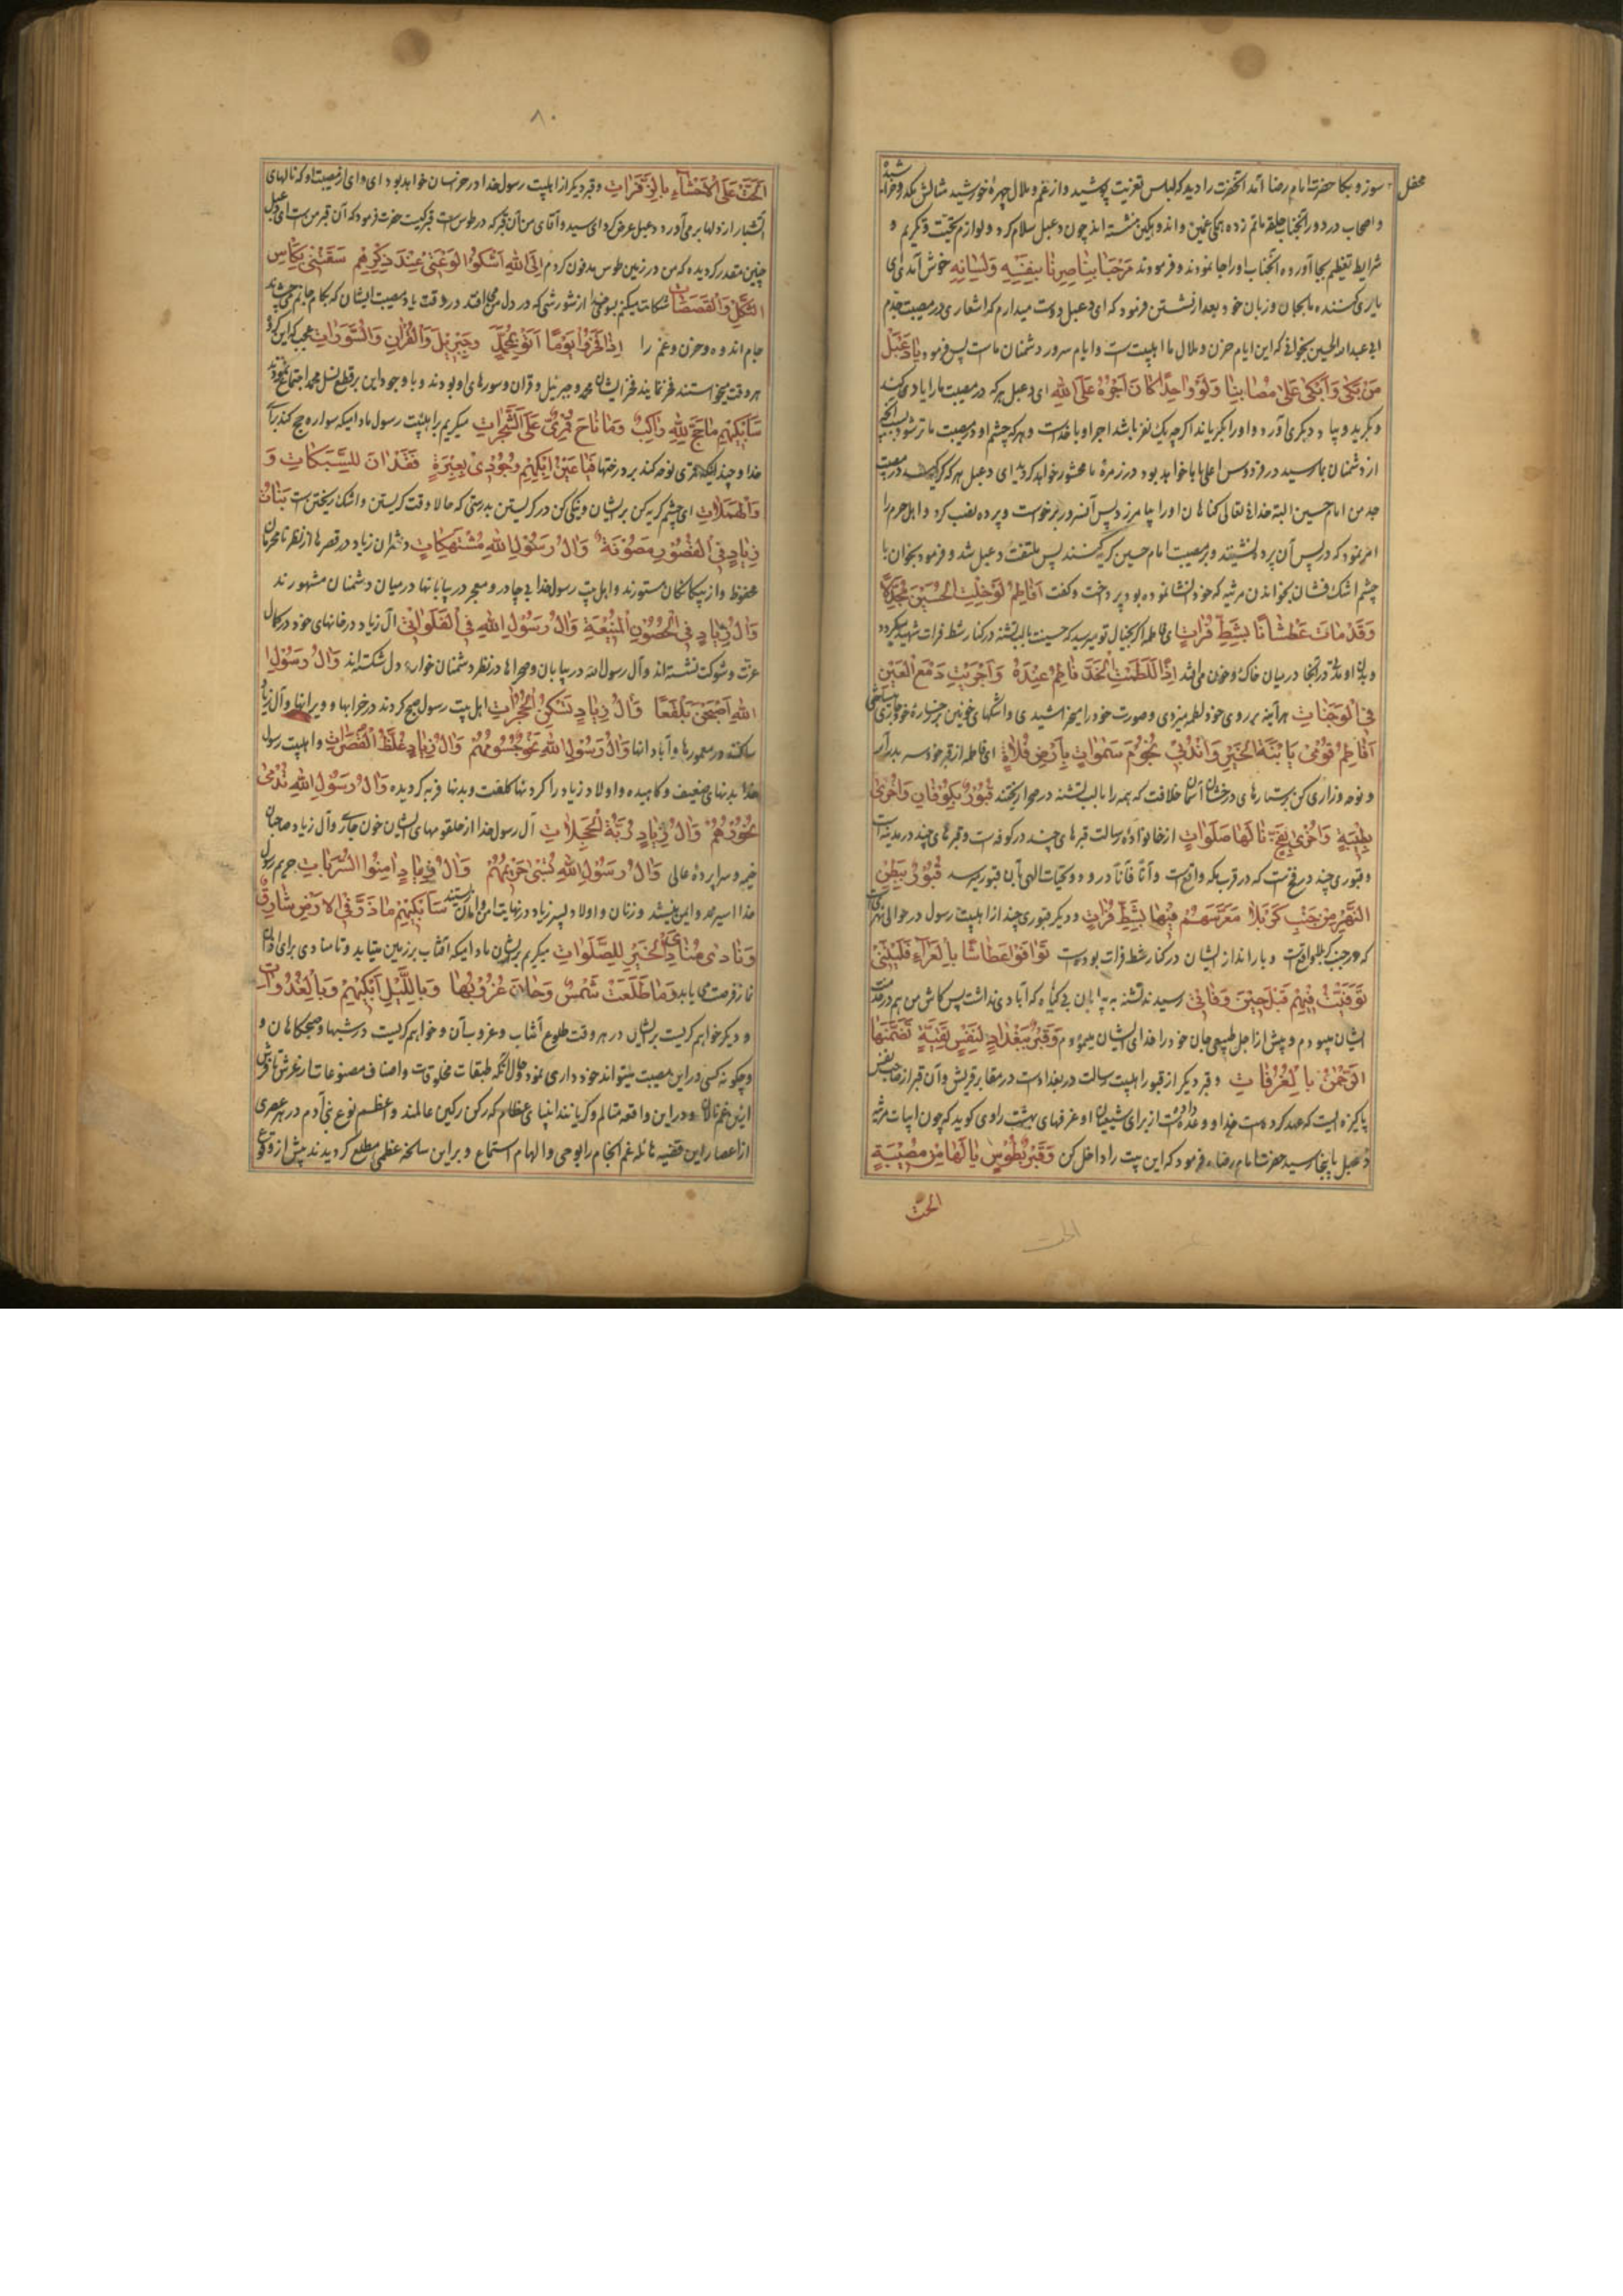 محفل
سوز و بکا حضرت امام رضا آمد آنحضرت را دید که لباس تعزیت پوشیده و از غم و ملال چهرهٔ خورشید مثالش
و اصحاب در دور آنجناب حلقه ماتم زده همکی غمین و اندوهکین نشسته اند چون دعبل سلام کرد و لوازم تحیت و تکریم و
شرایط تعظیم بجا آورد آنجناب او را نمودند و فرمودند مَرْحَبًا بِنَاصِرِنَا بِنَفْسِهِ وَلِسَانِهِ خوش آمدی ای
یاری کننده ما بجان و زبان خود بعد از نشستن فرمود که ای دعبل دوست میدارم که اشعاری در مصیبت جدم
ابی عبدالله الحسین بخوانی که این ایام حزن و ملال ما اهلبیت است و ایام سرور دشمنان ماست پس فرمود یَا دِعْبِلُ
مَنْ بَکَی وَاَبْکَی عَلَی مُصَابِنَا وَلَوْ وَاحِدًا کَانَ اَجْرُهُ عَلَی اللهِ ای دعبل هر که در مصیبت ما را یاد کند
و بکرید و یا دیکری آورد و او را بکریاند اکرچه یک نفر باشد اجر او با خداست و هر که چشم او در مصیبت ما تر شود
از دشمنان بما رسید در فردوس اعلی با ما خواهد بود و در زمرهٔ ما محشور خواهد کردید ای دعبل هر که در مصیبت
جد من امام حسین البته خدای تعالی کناهان او را بیامرزد پس آنسرور برخواست و پرده نصب کرد و اهل حرم را
امر نمود که در پس آن پرده نشینند و بر مصیبت امام حسین کریه کنند پس ملتفت دعبل شد و فرمود بخوان با
چشم اشک فشان بخواندن مرثیه که خود انشا نموده بود پرداخت و کفت اَفَاطِمُ لَوْ خِلْتِ الْحُسَیْنَ مُجَدَّلًا
وَقَدْ مَاتَ عَطْشَانًا بِشَطِّ فُرَاتٍ ای فاطمه اکر بخیال تو میرسید که حسینت با لب تشنه در کنار شط فرات شهید میکردد
و بدن او در آنجا در میان خاک و خون می افتد اِذًا لَلَطَمْتِ الْخَدَّ فَاطِمُ عِنْدَهُ وَاَجْرَیْتِ دَمْعَ الْعَیْنِ
فِی الْوَجَنَاتِ هر آینه بر روی خود لطمه میزدی و صورت خود را میخراشیدی و اشکهای خونین بر رخساره خود جاری میساختی
اَفَاطِمُ قُومِی یَا ابْنَةَ الْخَیْرِ وَانْدُبِی نُجُومَ سَمٰوَاتٍ بِاَرْضِ فَلَاةٍ ای فاطمه از قبر خود سر بدر آر
و نوحه و زاری کن بر ستارهای درخشان آسمان خلافت که همه را با لب تشنه در صحرا ریختند قُبُورٌ بِکُوفَانٍ وَاُخْرَی
بِطَیْبَةٍ وَاُخْرَی بِفَخٍّ نَالَهَا صَلَوَاتٍ از خانوادهٔ رسالت قبرهای چند در کوفه است و قبرهای چند در مدینه است
و قبوری چند در فخ است که در قرب مکه واقع است و آنًا فآنًا درود و تحیات الهی بآن قبور میرسد قُبُورٌ بِبَطْنِ
النَّهْرِ مِنْ جَنْبِ کَرْبَلَا مُعَرَّسُهُمْ فِیهَا بِشَطِّ فُرَاتٍ و دیکر قبوری چند از اهلبیت رسول در حوالی
که در جنب کربلا واقع است و بار انداز ایشان در کنار شط فرات بوده است تُوُفُّوا عِطَاشًا بِالْعَرَاءِ فَلَیْتَنِی
تُوُفِّیتُ فِیهِمْ قَبْلَ حِینِ وَفَاتِی رسیدند تشنه به بیابان بی کیاه که آبادی نداشت پس کاش من هم در خدمت
ایشان میبودم و پیش از اجل طبیعی جان خود را فدای ایشان مینمودم وَقَبْرٌ بِبَغْدَادٍ لِنَفْسٍ نَقِیَّةٍ تَضَمَّنَهَا
الرَّحْمٰنُ بِالْغُرُفَاتِ و قبر دیکر از قبور اهلبیت رسالت در بغداد است در مقابر قریش و آن قبر از صاحب نفس
پاکیزه ایست که عهد کرده است خدا و وعده داده است از برای شیعیان او غرفهای بهشت راوی کوید که چون ابیات مرثیه
دعبل باینجا رسید حضرت امام رضا فرمود که این بیت را داخل کن وَقَبْرٌ بِطُوسٍ یَا لَهَا مِنْ مُصِیبَةٍ
الحت
الحت
٨٠
اَلَحَّتْ عَلَی الْاَحْشَاءِ بِالزَّفَرَاتِ و قبر دیکر از اهلبیت رسول خدا در خراسان خواهد بود ای وای از مصیبت او که نالهای
آتشبار از دلها برمی آورد دعبل عرض کرد ای سید و آقای من آن قبر که در طوس است قبر کیست حضرت فرمود که آن قبر من است ای دعبل
چنین مقدر کردیده که من در زمین طوس مدفون کردم اِلَی اللهِ اَشْکُو لَوْعَةً عِنْدَ ذِکْرِهِمْ سَقَتْنِی بِکَأْسِ
الثُّکْلِ وَالْقَصَصَاتِ شکایت میکنم بسوی خدا از شورشی که در دل من می افتد در وقت یاد مصیبت ایشان که بکام جانم
جام اندوه و حزن و غم را اِذَا فَخَرُوا یَوْمًا اَتَوْا بِمُحَمَّدٍ وَجِبْرِیلَ وَالْقُرْاٰنِ وَالسُّوَرَاتِ
هر وقت میخواستند فخر نمایند فخر ایشان محمد و جبرئیل و قرآن و سورهای او بودند و با وجود این بر قطع نسل محمد اجتماع نمودند
سَاَبْکِیهِمْ مَا حَجَّ لِلّٰهِ رَاکِبٌ وَمَا نَاحَ قُمْرِیٌّ عَلَی الشَّجَرَاتِ میکریم بر اهلبیت رسول مادامیکه سواره حج کند برای
خدا و چندانکه قمری نوحه کند بر درختها فَیَا عَیْنُ ابْکِیهِمْ وَجُودِی بِعَبْرَةٍ فَقَدْ اٰنَ لِلتَّسْکَابِ وَ
وَالْهَمَلَاتِ ای چشم کریه کن بر ایشان و نیکی کن در کریستن بدرستی که حالا وقت کریستن و اشک ریختن است بَنَاتُ
زِیَادٍ فِی الْقُصُورِ مَصُونَةٌ وَاٰلُ رَسُولِ اللهِ مُنْتَهِکَاتٍ دختران زیاد در قصرها از نظر نامحرمان
محفوظ و از بیکانکان مستورند و اهل بیت رسول خدا بی چادر و معجر در بیابانها در میان دشمنان مشهورند
وَاٰلُ زِیَادٍ فِی الْحُصُونِ الْمَنِیعَةِ وَاٰلُ رَسُولِ اللهِ فِی الْفَلَوَاتِ آل زیاد در خانهای خود در کمال
عزت و شوکت نشسته اند و آل رسول الله در بیابان و صحراها در نظر دشمنان خوار و دل شکسته اند وَاٰلُ رَسُولِ
اللهِ اَصْبَحْنَ بَلْقَعًا وَاٰلُ زِیَادٍ تَسْکُنُ الْحُجُرَاتِ اهل بیت رسول صبح کردند در خرابها و ویرانها و آل زیاد
ساکنند در معمورها و آبادانها وَاٰلُ رَسُولِ اللهِ نُحْفٌ جُسُومُهُمْ وَاٰلُ زِیَادٍ غُلَّظُ الْقَصَرَاتِ و اهلبیت رسول
خدا بدنهای ضعیف و کاهیده و اولاد زیاد را کردنها کلفت و بدنها فربه کردیده وَاٰلُ رَسُولِ اللهِ تُدْمَی
نُحُورُهُمْ وَاٰلُ زِیَادٍ رَبَّةُ الْحَجَلَاتِ آل رسول خدا از حلقومهای ایشان خون جاری و آل زیاد صاحبان
خیمه و سراپردهٔ عالی وَاٰلُ رَسُولِ اللهِ تُسْبَی حَرِیمُهُمْ وَاٰلُ زِیَادٍ اٰمَنُوا السَّرَبَاتِ حریم رسول
خدا اسیر و زنان و اولاد پسر زیاد در نهایت امن و امان سَاَبْکِیهِمْ مَا ذَرَّ فِی الْاَرْضِ شَارِقٌ
وَنَادَی مُنَادِی الْخَیْرِ لِلصَّلَوَاتِ میکریم بر ایشان مادامیکه آفتاب بر زمین میتابد و تا منادی برای اذان
نماز فرصت می یابد وَمَا طَلَعَتْ شَمْسٌ وَحَانَ غُرُوبُهَا وَبِاللَّیْلِ اَبْکِیهِمْ وَبِالْغُدُوَاتِ
و دیکر خواهم کریست بر ایشان در هر وقت طلوع آفتاب و غروب آن و خواهم کریست در شبها و صبحکاهان و
و چکونه کسی در این مصیبت میتواند خود داری نمود و حال آنکه طبقات مخلوقات و اصناف مصنوعات از عرش تا فرش
از این غم نالان و در این واقعه متالم و کریانند انبیای عظام که رکن رکین عالمند و اعظم نوع بنی آدم در هر عصری
از اعصار این قضیه هائله غم انجام را بوحی و الهام استماع و بر این سانحه عظمی مطلع کردیدند پیش از وقوع